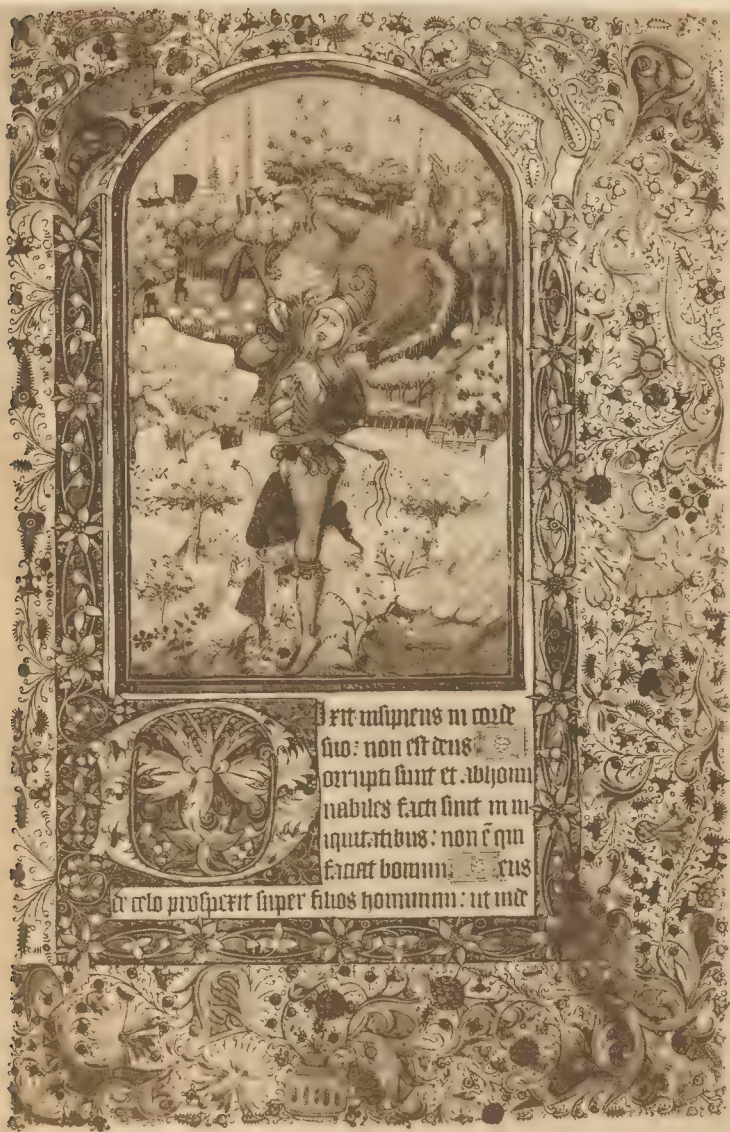 Dixit insipiens in corde
suo: non est deus
Corrupti sunt et abhomi
nabiles facti sunt in in
iquitatibus: non ē qui
faciat bonum: Deus
de celo prosperit super filios hominum: ut vide